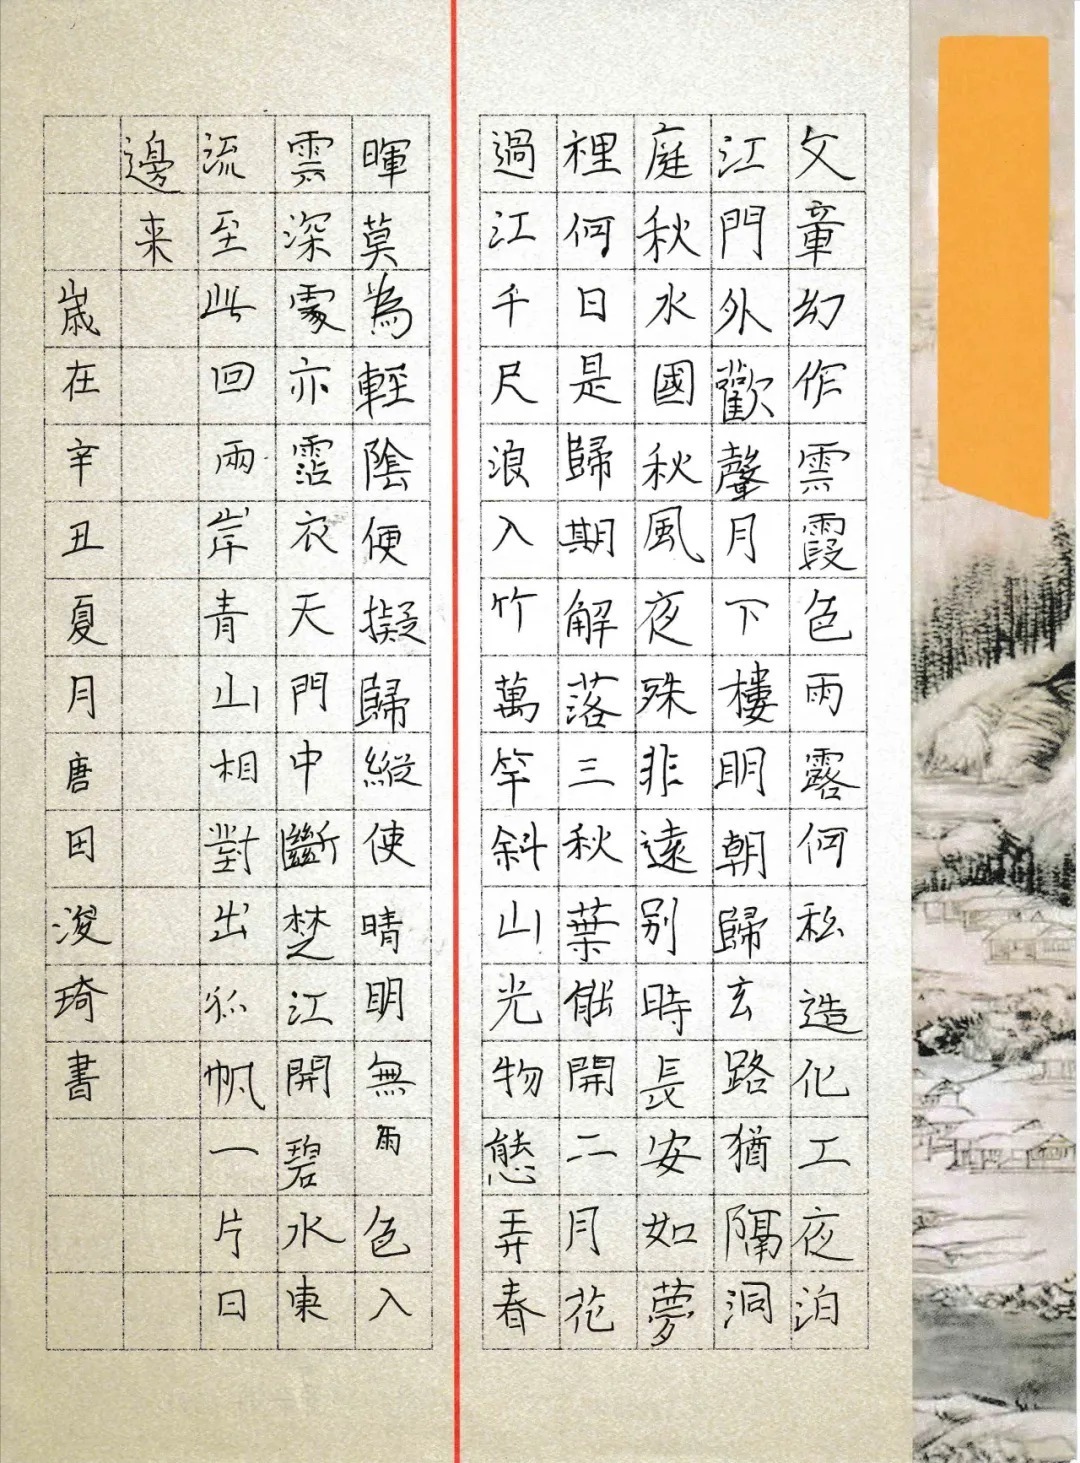 文章幻作雲霞色雨露何私造化工夜泊
江門外歡聲月下樓明朝歸玄路猶隔洞
庭秋水國秋風夜殊非遠別時長安如夢
裡何日是歸期解落三秋葉能開二月花
過江千尺浪入竹萬竿斜山光物態弄春
暉莫為輕陰便擬歸縱使晴明無雨色入
雲深處亦霑衣天門中斷楚江開碧水東
流至此回兩岸青山相對出孤帆一片日
邊来
歲在辛丑夏月唐田浚琦書